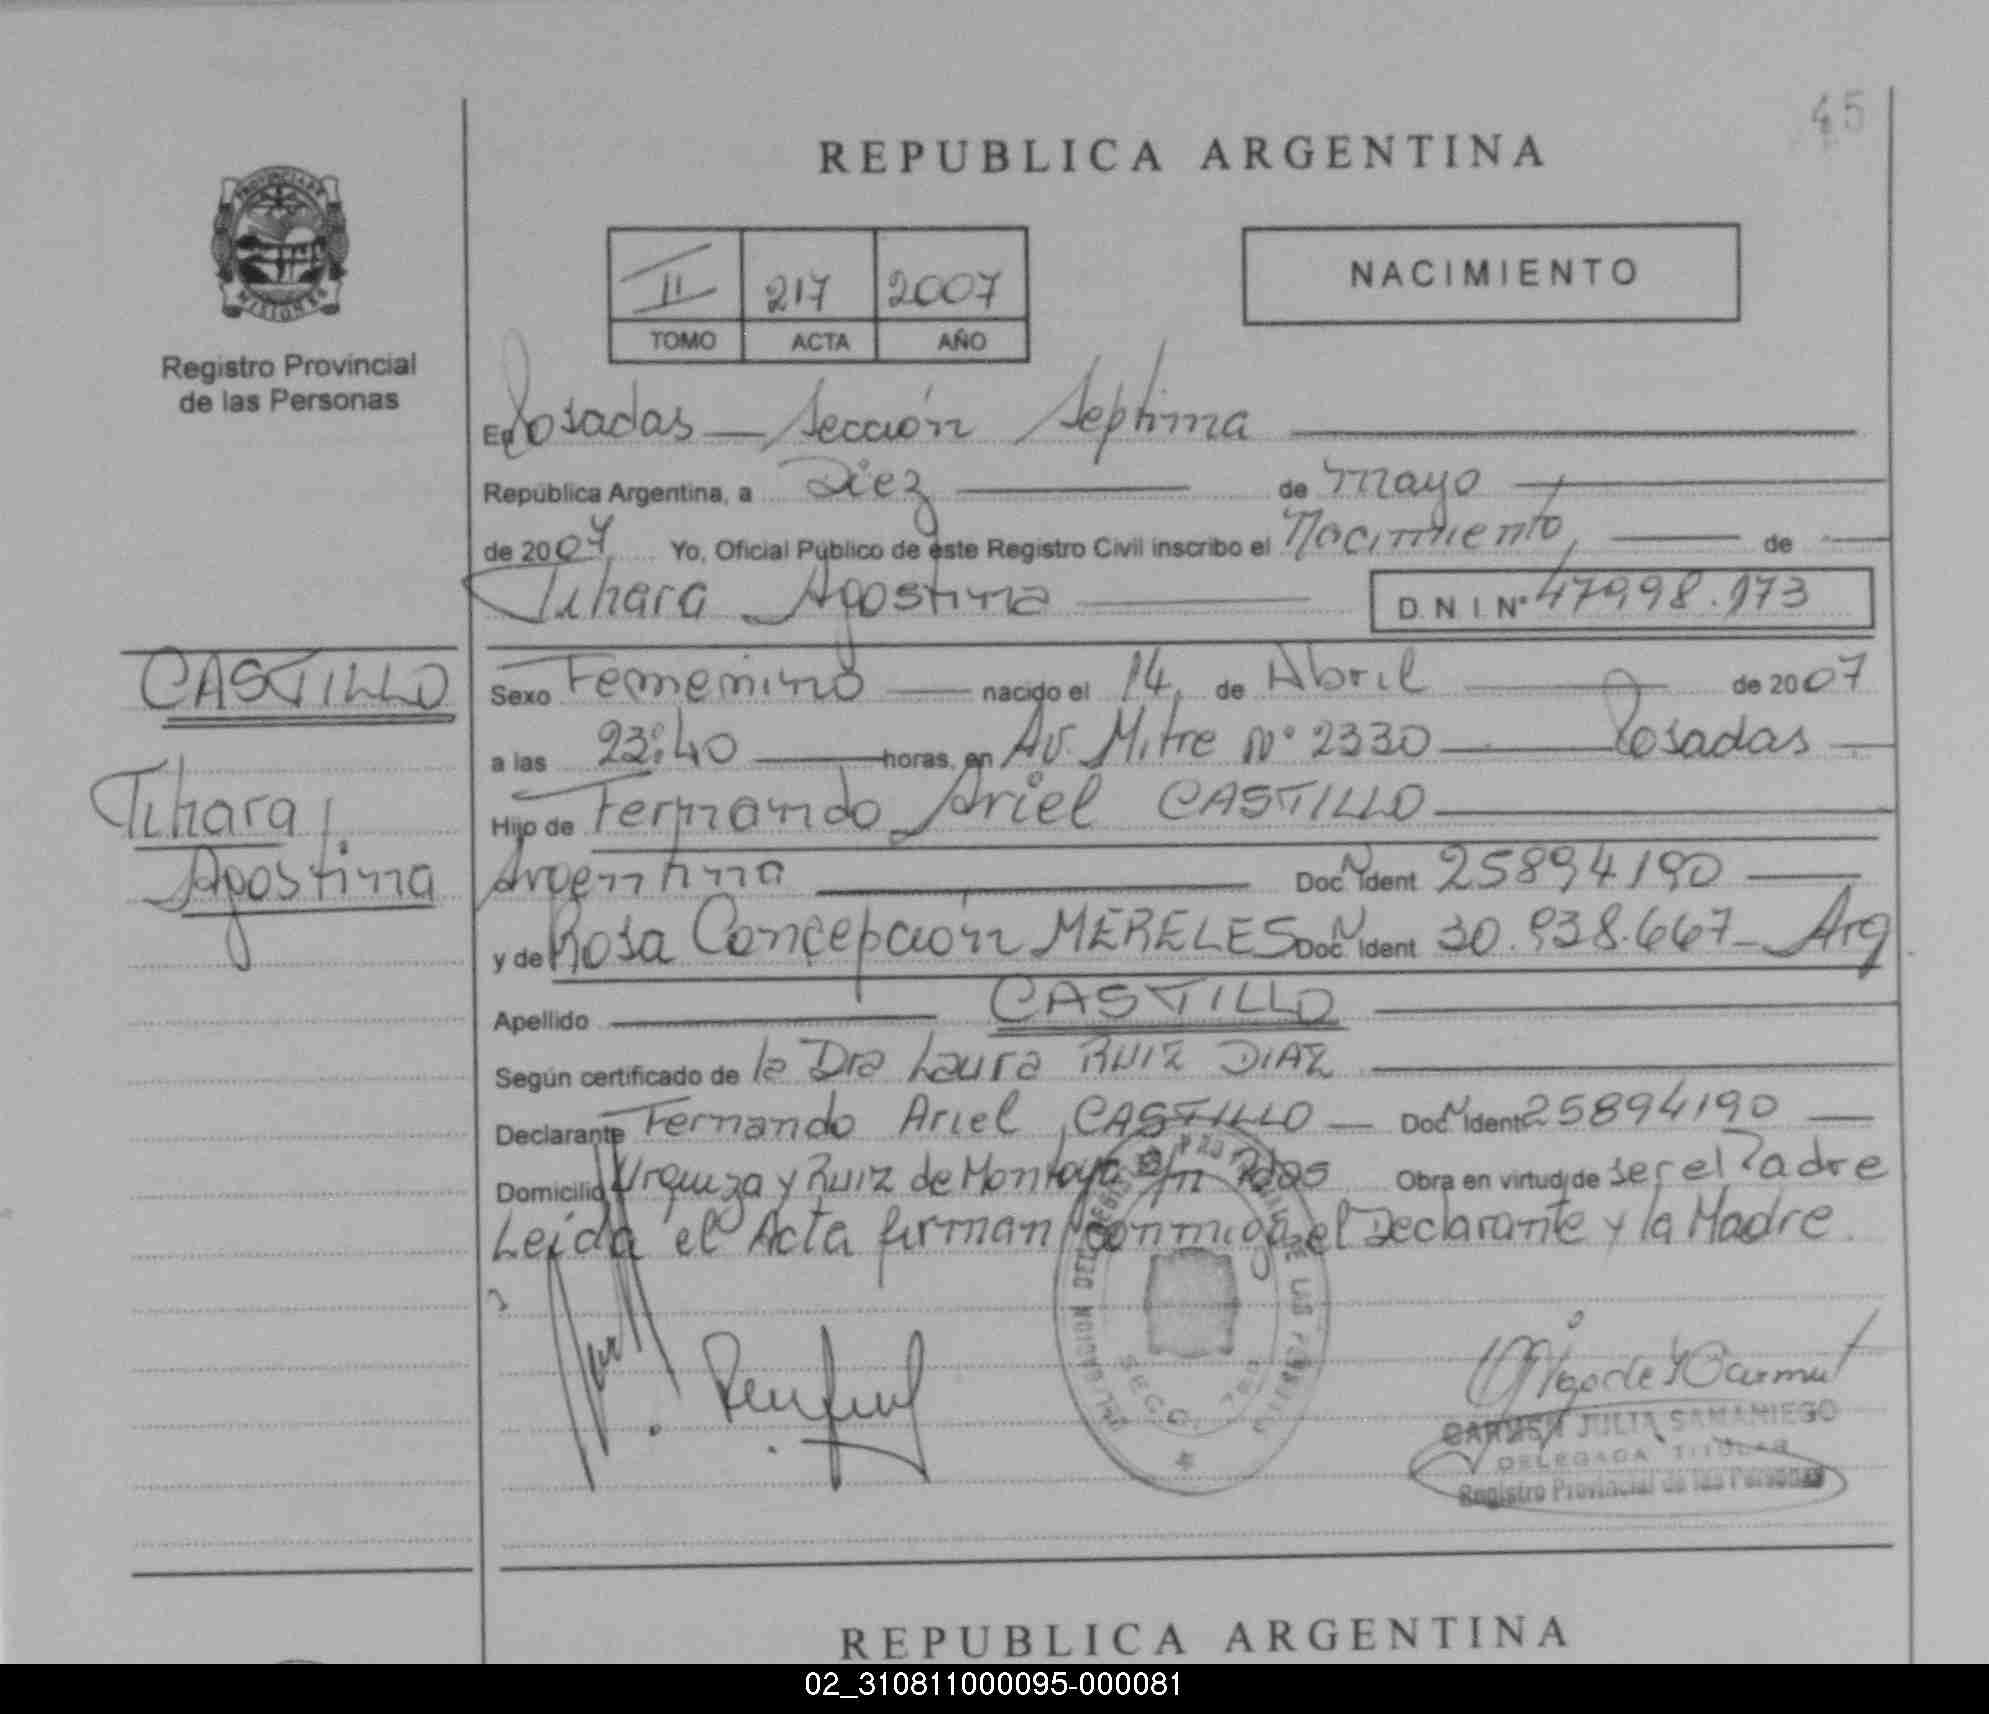 45
REPUBLICA ARGENTINA
PROVINCIA DE
MISIONES
II 217 2007
TOMO ACTA AÑO
NACIMIENTO
Registro Provincial
de las Personas
En Posadas - Sección Septima
República Argentina, a Diez de mayo
de 2007 Yo, Oficial Público de este Registro Civil inscribo el Nacimiento, de
Tihara Agostina D.N.I.Nº 47998.173
CASTILLO
Tihara
Agostina
Sexo Femenino nacido el 14 de Abril de 2007
a las 23:40 horas, en Av. Mitre Nº 2330 Posadas
Hijo de Fernando Ariel CASTILLO
Argentina Doc. N Ident 25894190
y de Rosa Concepción MERELES Doc. N Ident 30.938.667 - Arg
Apellido CASTILLO
Según certificado de la Dra Laura RUIZ DIAZ
Declarante Fernando Ariel CASTILLO - Doc. N Ident 25894190
Domicilio Urquiza y Ruiz de Montoya s/n Pdas Obra en virtud de ser el Padre
Leída el Acta firman conmigo el Declarante y la Madre.
CARMEN JULIA SAMANIEGO
DELEGADA TITULAR
Registro Provincial de las Personas
REPUBLICA ARGENTINA
02_310811000095-000081